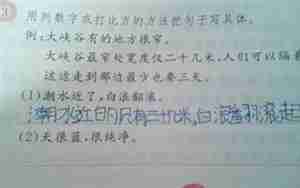 用列数字或打比方的方法把句子写具体。
例：大峡谷有的地方很窄。
大峡谷最窄处宽度仅二十几米，人们可以隔着
这边走到那边最少也要三天。
(1)潮水近了，白浪翻滚。
潮水近的只有三十几米，白浪翻滚起
(2)天很蓝，很纯净。